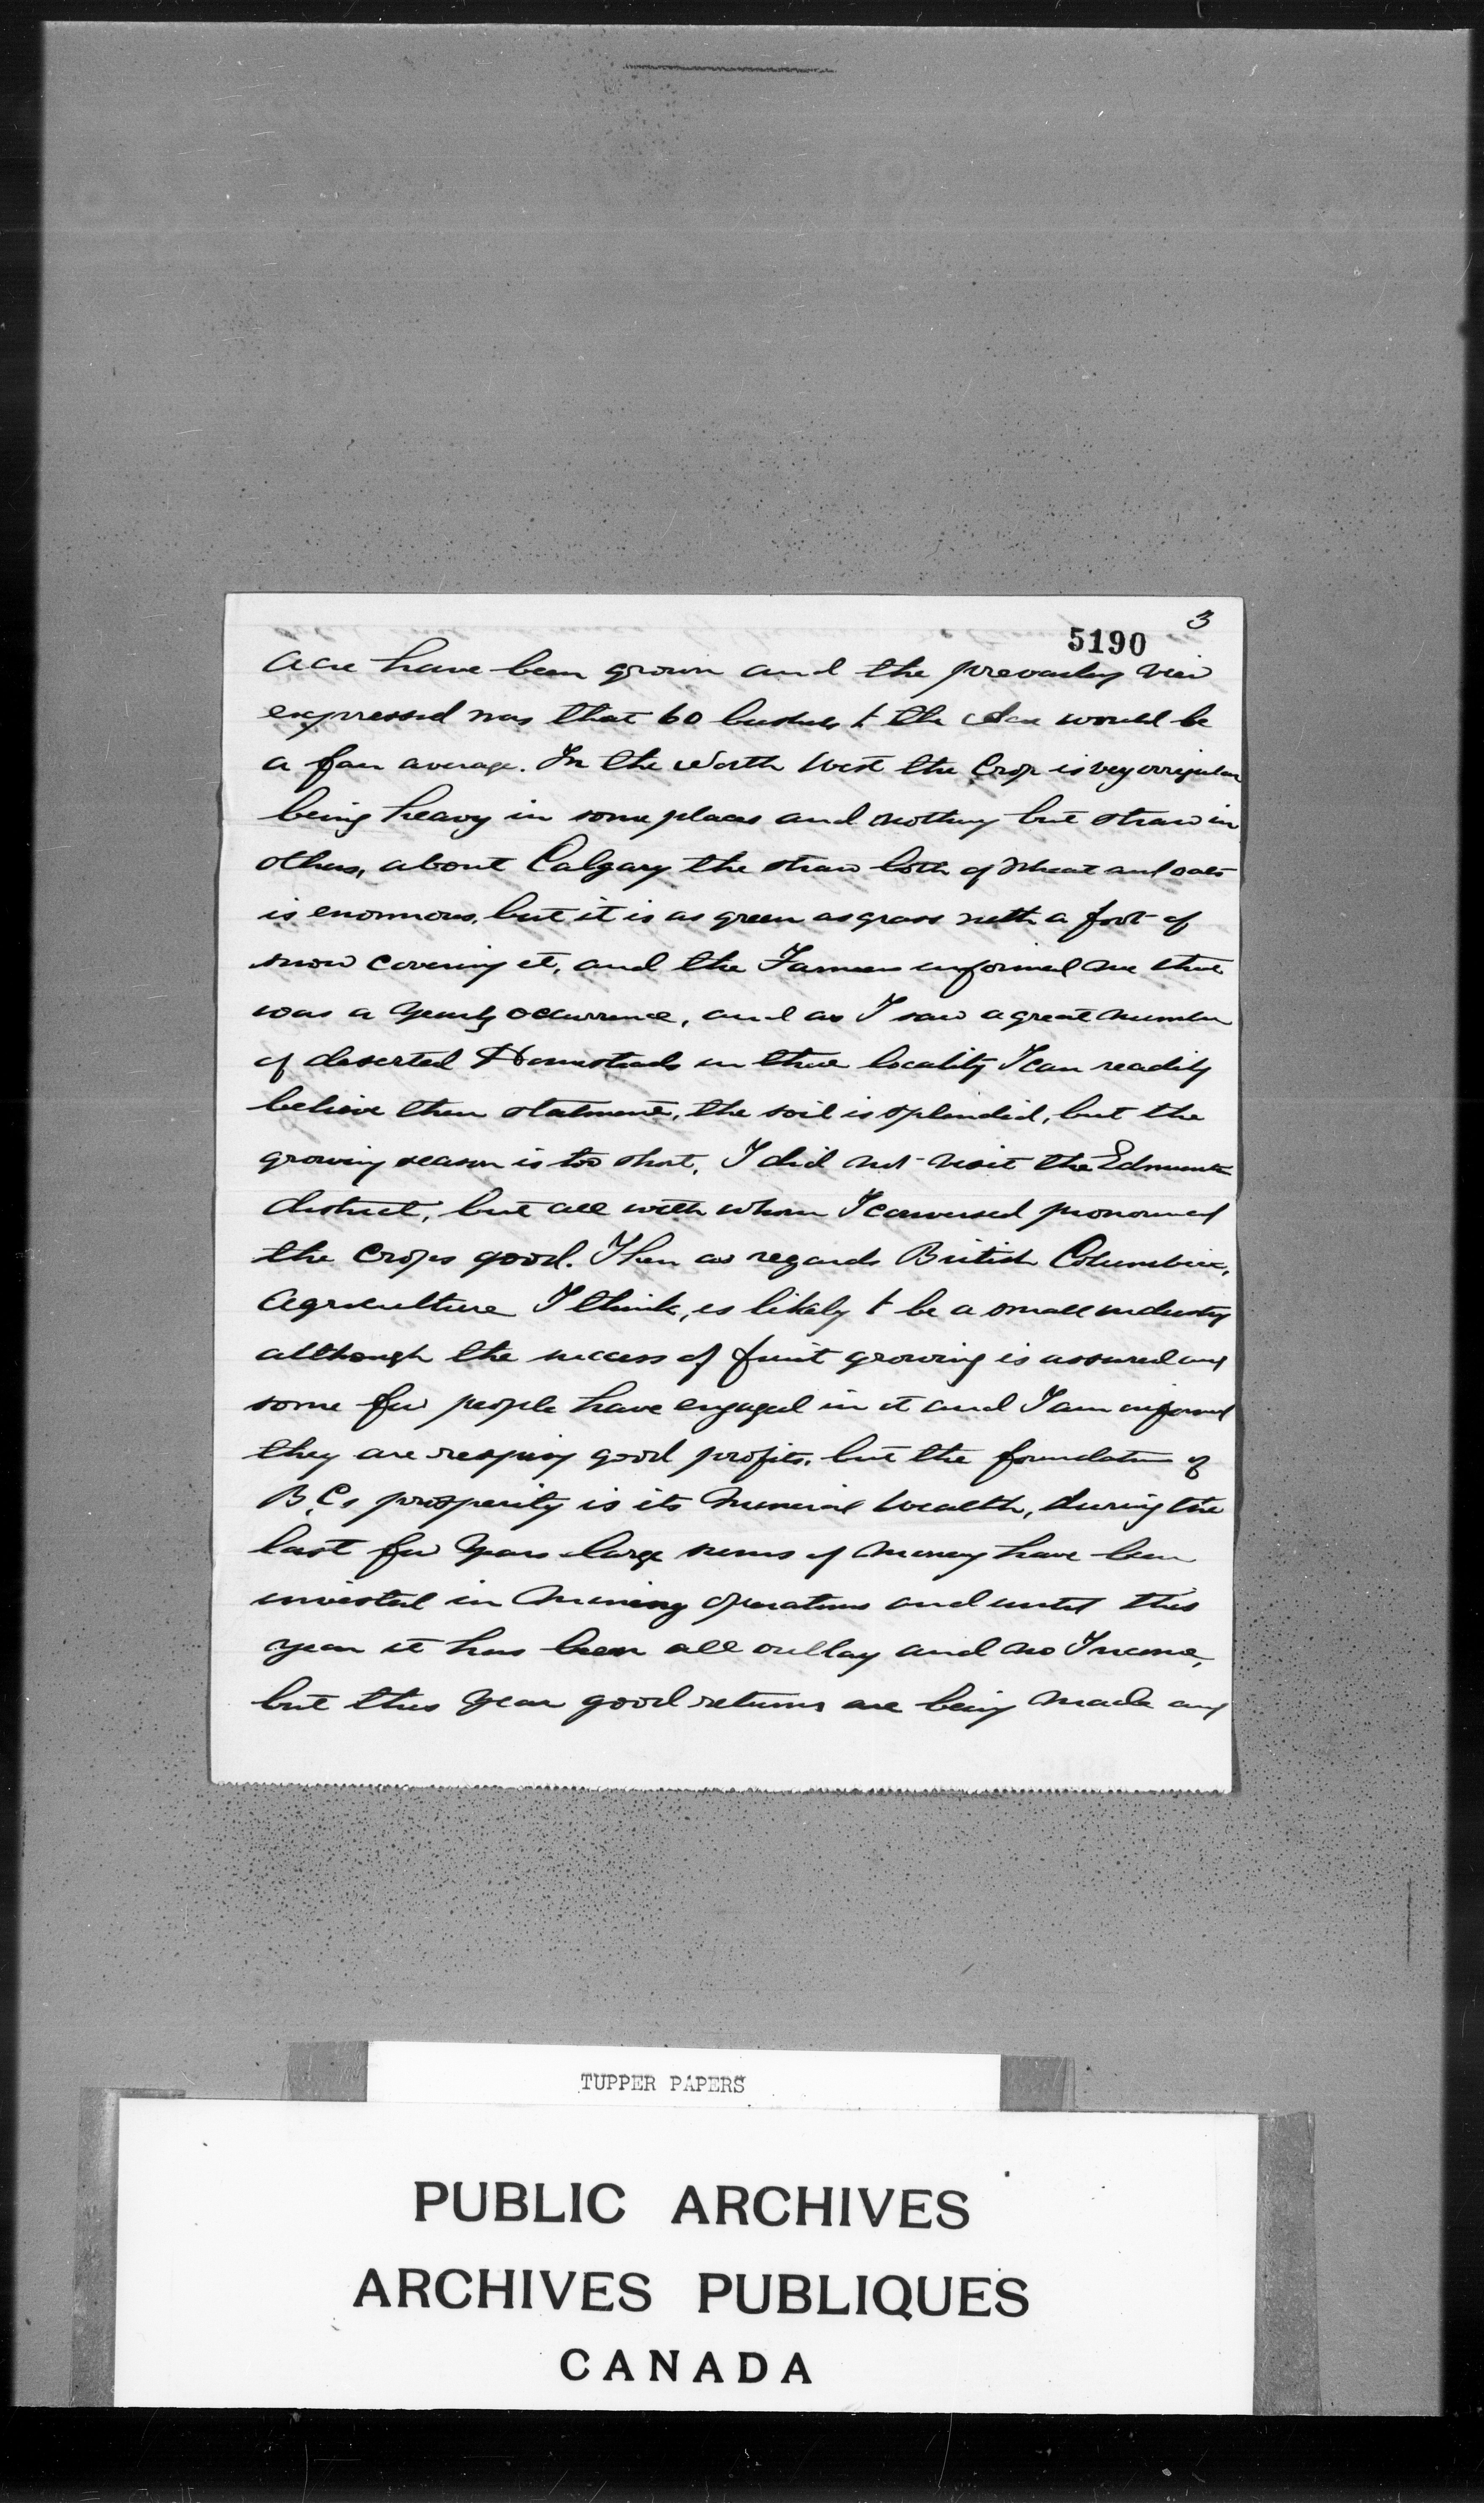 3
5190
acre have been grown and the prevailing view
expressed was that 60 bushels t the Acre would be
a fair average. In the North West the Crop is very irregular
being heavy in some places and nothing but straw in
others, about Calgary the straw both of Wheat and oats
is enormous, but it is as green as grass with a foot of
snow covering it, and the Farmers informed me that
was a yearly occurrence, and as I saw a great number
of deserted Homesteads in that locality I can readily
believe their statement, the soil is splendid, but the
growing season is too short. I did not visit the Edmonton
district, but all with whom I conversed pronounced
the Crops good. Then as regards British Columbia,
Agriculture I think, is likely t be a small industry
although the success of fruit growing is assured and
some few people have engaged in it and I am informed
they are reaping good profits, but the foundation of
B.Cs prosperity is its Mineral Wealth, during the
last few Years large sums of money have been
invested in Mining operations and until this
year it has been all outlay and no Income,
but this Year good returns are being made and
TUPPER PAPERS
PUBLIC ARCHIVES
ARCHIVES PUBLIQUES
CANADA